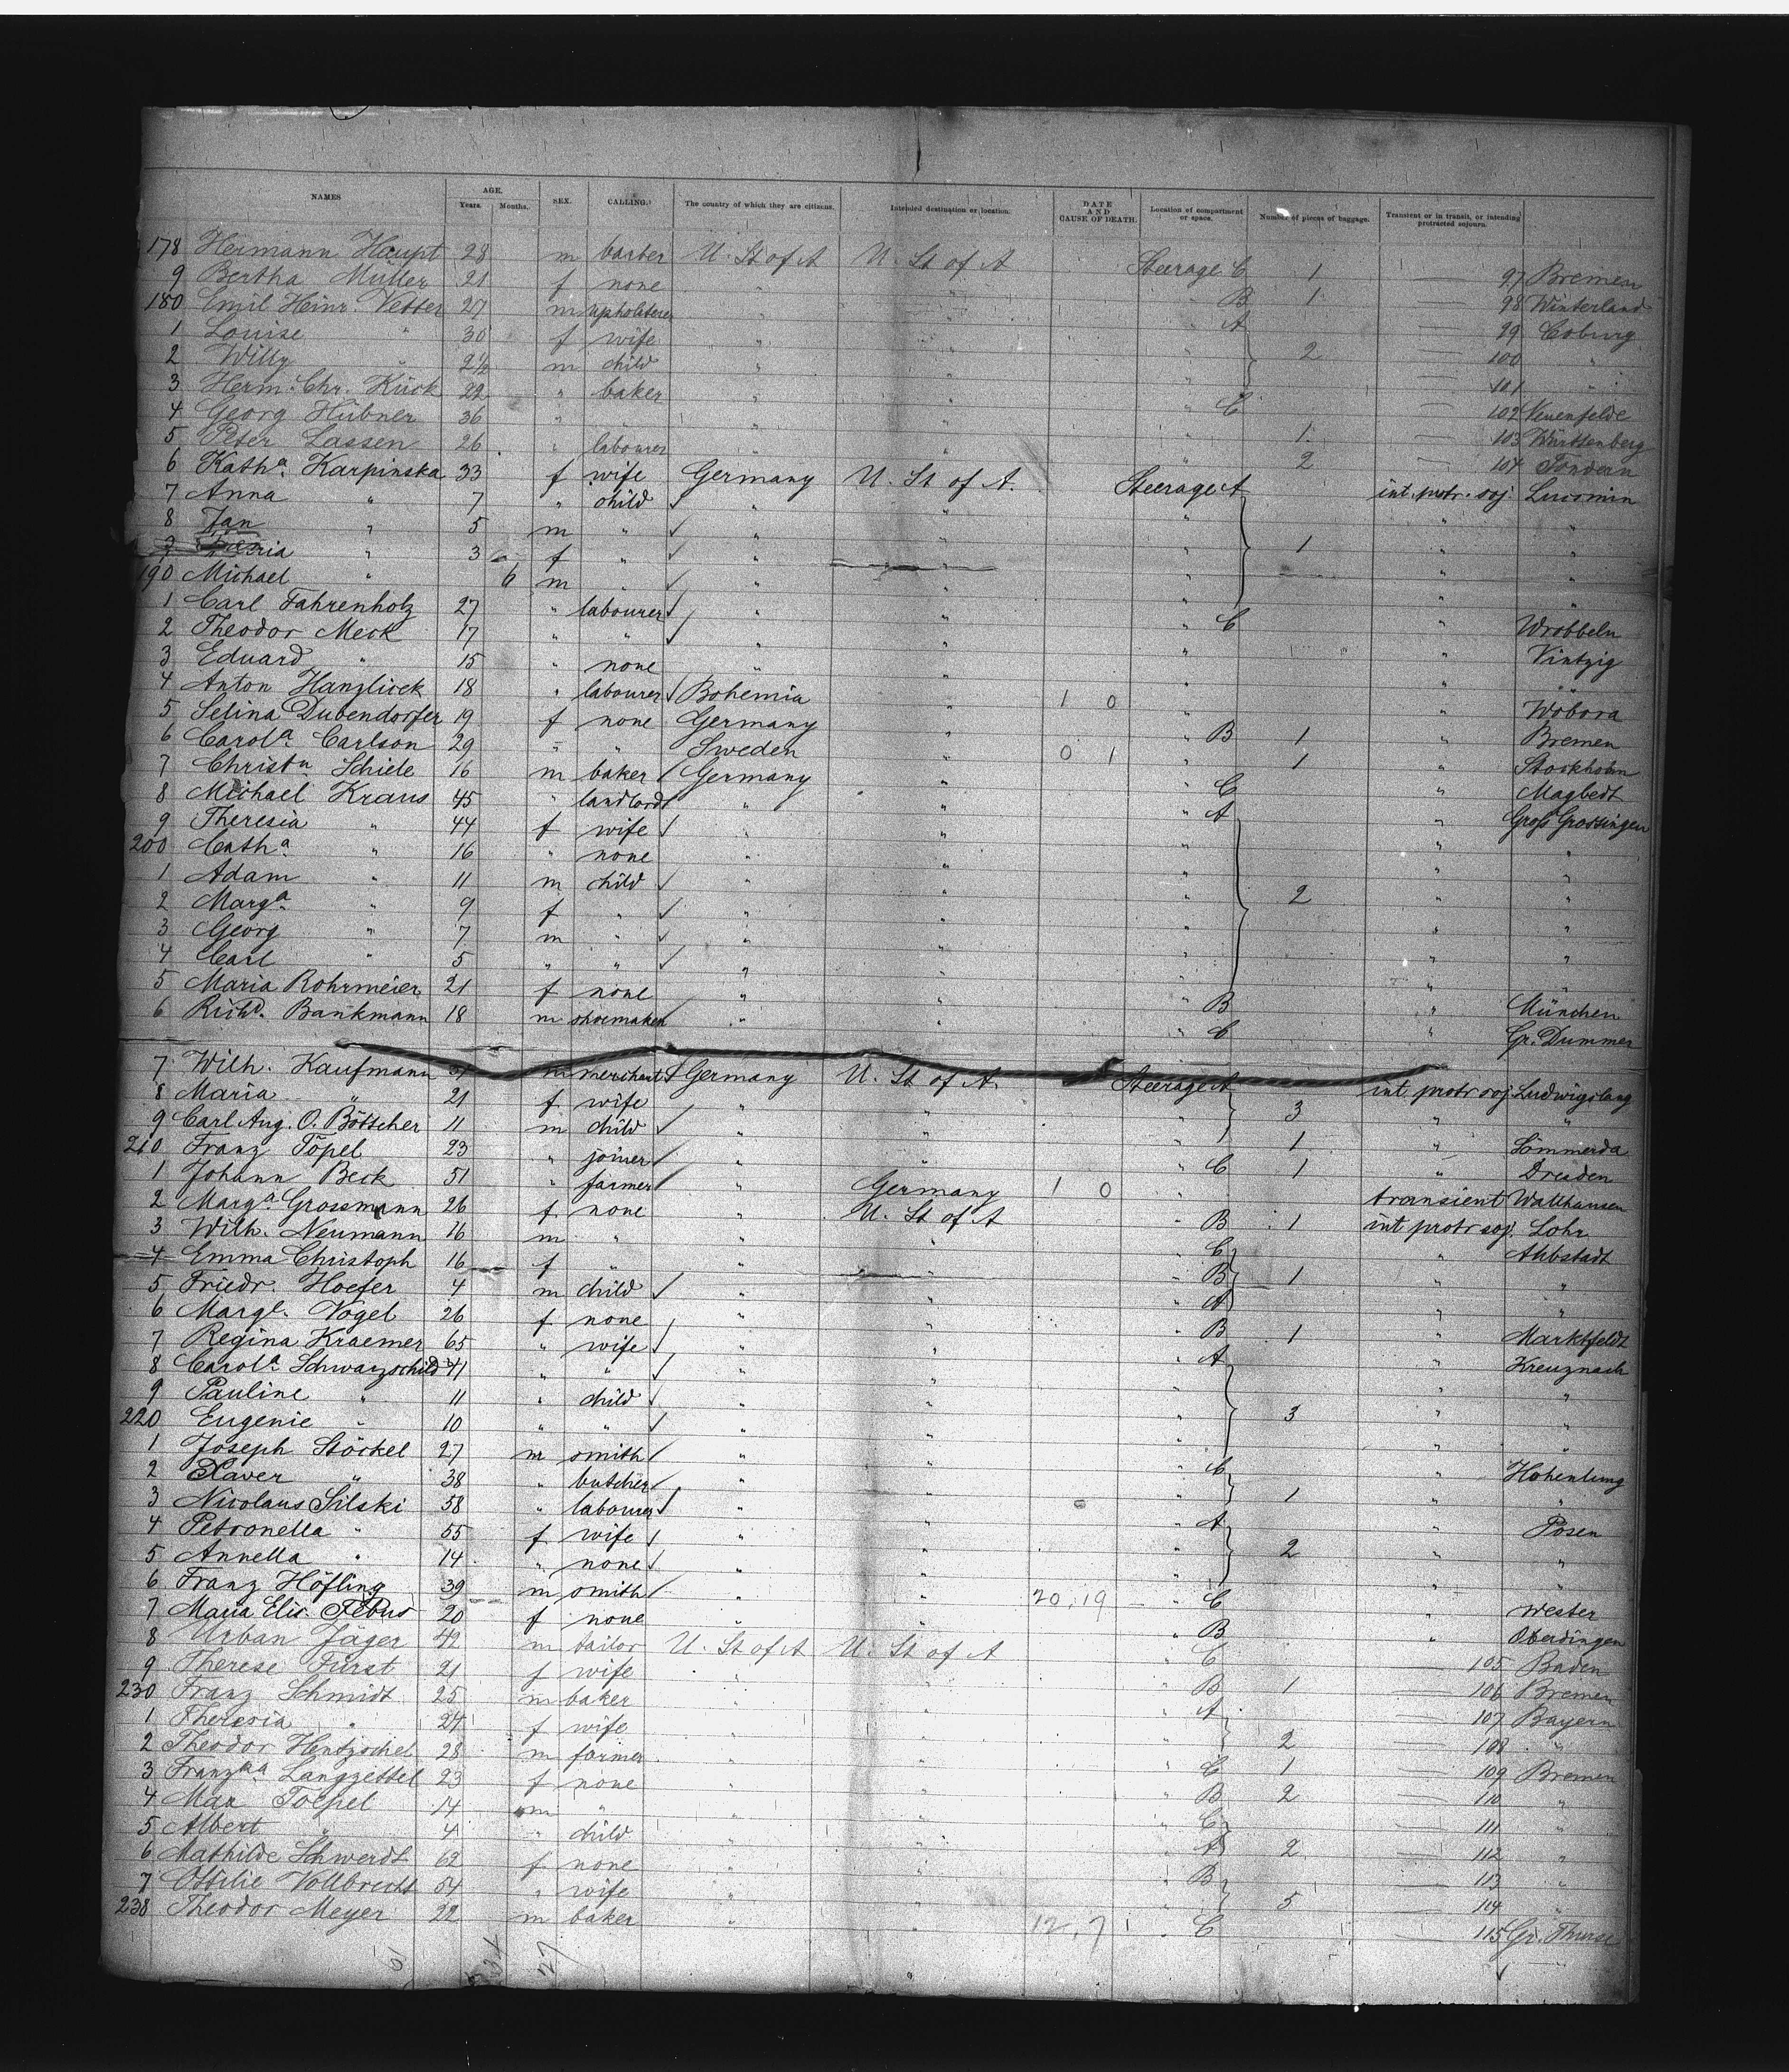 NAMES AGE. Years. Months. SEX. CALLING. The country of which they are citizens. Intended destination or location. DATE AND CAUSE OF DEATH. Location of compartment or space. Number of pieces of baggage. Transient or in transit, or intending protracted sojourn.
178 Hermann Haupt 28 m barber U. St of A U. St of A Steerage C 1 — 97 Bremen
9 Bertha Müller 21 f none " " " B 1 — 98 Winterland
180 Emil Heinr. Vetter 27 m upholsterer " " " A — 99 Coburg
1 Louise " 30 f wife " " " 2 — 100 "
2 Willy " 2½ m child " " " — 101 "
3 Herm. Chr. Kück 22 " baker " " " C — 102 Neuenfelde
4 Georg Hübner 36 " " " " " 1 — 103 Württenberg
5 Peter Lassen 26 " labourer " " " 2 — 104 Tondern
6 Katha. Karpinska 33 f wife Germany U. St of A. Steerage A int. protr. soj. Lucomin
7 Anna " 7 " child " " " " "
8 Jan " 5 m " " " " 1 " "
9 " 3 f " " " " " "
190 Michael " 6 m " " " " " "
1 Carl Fahrenholz 27 " labourer " " " C " Wrobbeln
2 Theodor Meck 17 " " " " " " Vintzig
3 Eduard " 15 " none " " " " "
4 Anton Hanzlicek 18 " labourer Bohemia " 1 0 " " Wobora
5 Selina Dubendorfer 19 f none Germany " " B 1 " Bremen
6 Carola. Carlson 29 " " Sweden " 0 1 " 1 " Stockholm
7 Christn Schiele 16 m baker Germany " " C " Magbedt
8 Michael Kraus 45 " landlord " " " A " Gross Grossingen
9 Theresia " 44 f wife " " " " "
200 Catha. " 16 " none " " " " "
1 Adam " 11 m child " " " 2 " "
2 Marga. " 9 f " " " " " "
3 Georg " 7 m " " " " " "
4 Carl " 5 " " " " " " "
5 Maria Rohrmeier 21 f none " " " B " München
6 Richd. Bankmann 18 m shoemaker " " " C " Gr. Dummer
7 Wilh. Kaufmann m merchant Germany U. St of A. Steerage A int protr soj. Ludwigslang
8 Maria " 21 f wife " " " 3 " "
9 Carl Aug. O. Böttcher 11 m child " " " 1 " Sömmerda
210 Franz Töpel 23 " joiner " " " C 1 " Dresden
1 Johann Beck 51 " farmer " Germany 1 0 " transient Walthausen
2 Marga. Grossmann 26 f none " U. St of A " B 1 int protr soj. Lohr
3 Wilh. Neumann 16 m " " " " C " Ahbstadt
4 Emma Christoph 16 f " " " " B 1 " "
5 Friedr. Hoefer 4 m child " " " A " "
6 Margt. Vogel 26 f none " " " B 1 " Marktfeldt
7 Regina Kraemer 65 " wife " " " A " Kreuznach
8 Carola. Schwarzschild 41 " " " " " " "
9 Pauline " 11 " child " " " 3 " "
220 Eugenie " 10 " " " " " " "
1 Joseph Stöckel 27 m smith " " " C " Hohenlung
2 Xaver " 38 " butcher " " " 1 " "
3 Nicolaus Silski 58 " labourer " " " A " Posen
4 Petronella " 55 f wife " " " 2 " "
5 Annella " 14 " none " " " " "
6 Franz Höfling 39 m smith " " 20,19 " C " Wester
7 Maria Elis. 20 f none " " " B " Oberdingen
8 Urban Jäger 42 m tailor U. St of A U. St of A " C — 105 Baden
9 Therese Fürst 21 f wife " " " B 1 — 106 Bremen
230 Franz Schmidt 25 m baker " " " A — 107 Bayern
1 Theresia " 24 f wife " " " 2 — 108 "
2 Theodor Hentzschel 28 m farmer " " " C 1 — 109 Bremen
3 Franzca Langzettel 23 f none " " " B 2 — 110 "
4 Max Toepel 14 m " " " " C — 111 "
5 Albert " 4 " child " " " A 2 — 112 "
6 Mathilde Schwerdt 62 f none " " " B — 113 "
7 Ottilie Vollbrecht 54 " wife " " " 5 — 114 "
238 Theodor Meyer 22 m baker " " 12,7 " C — 115 Gr. Thurse